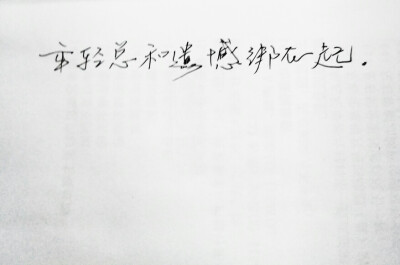 年轻总和遗憾绑在一起.